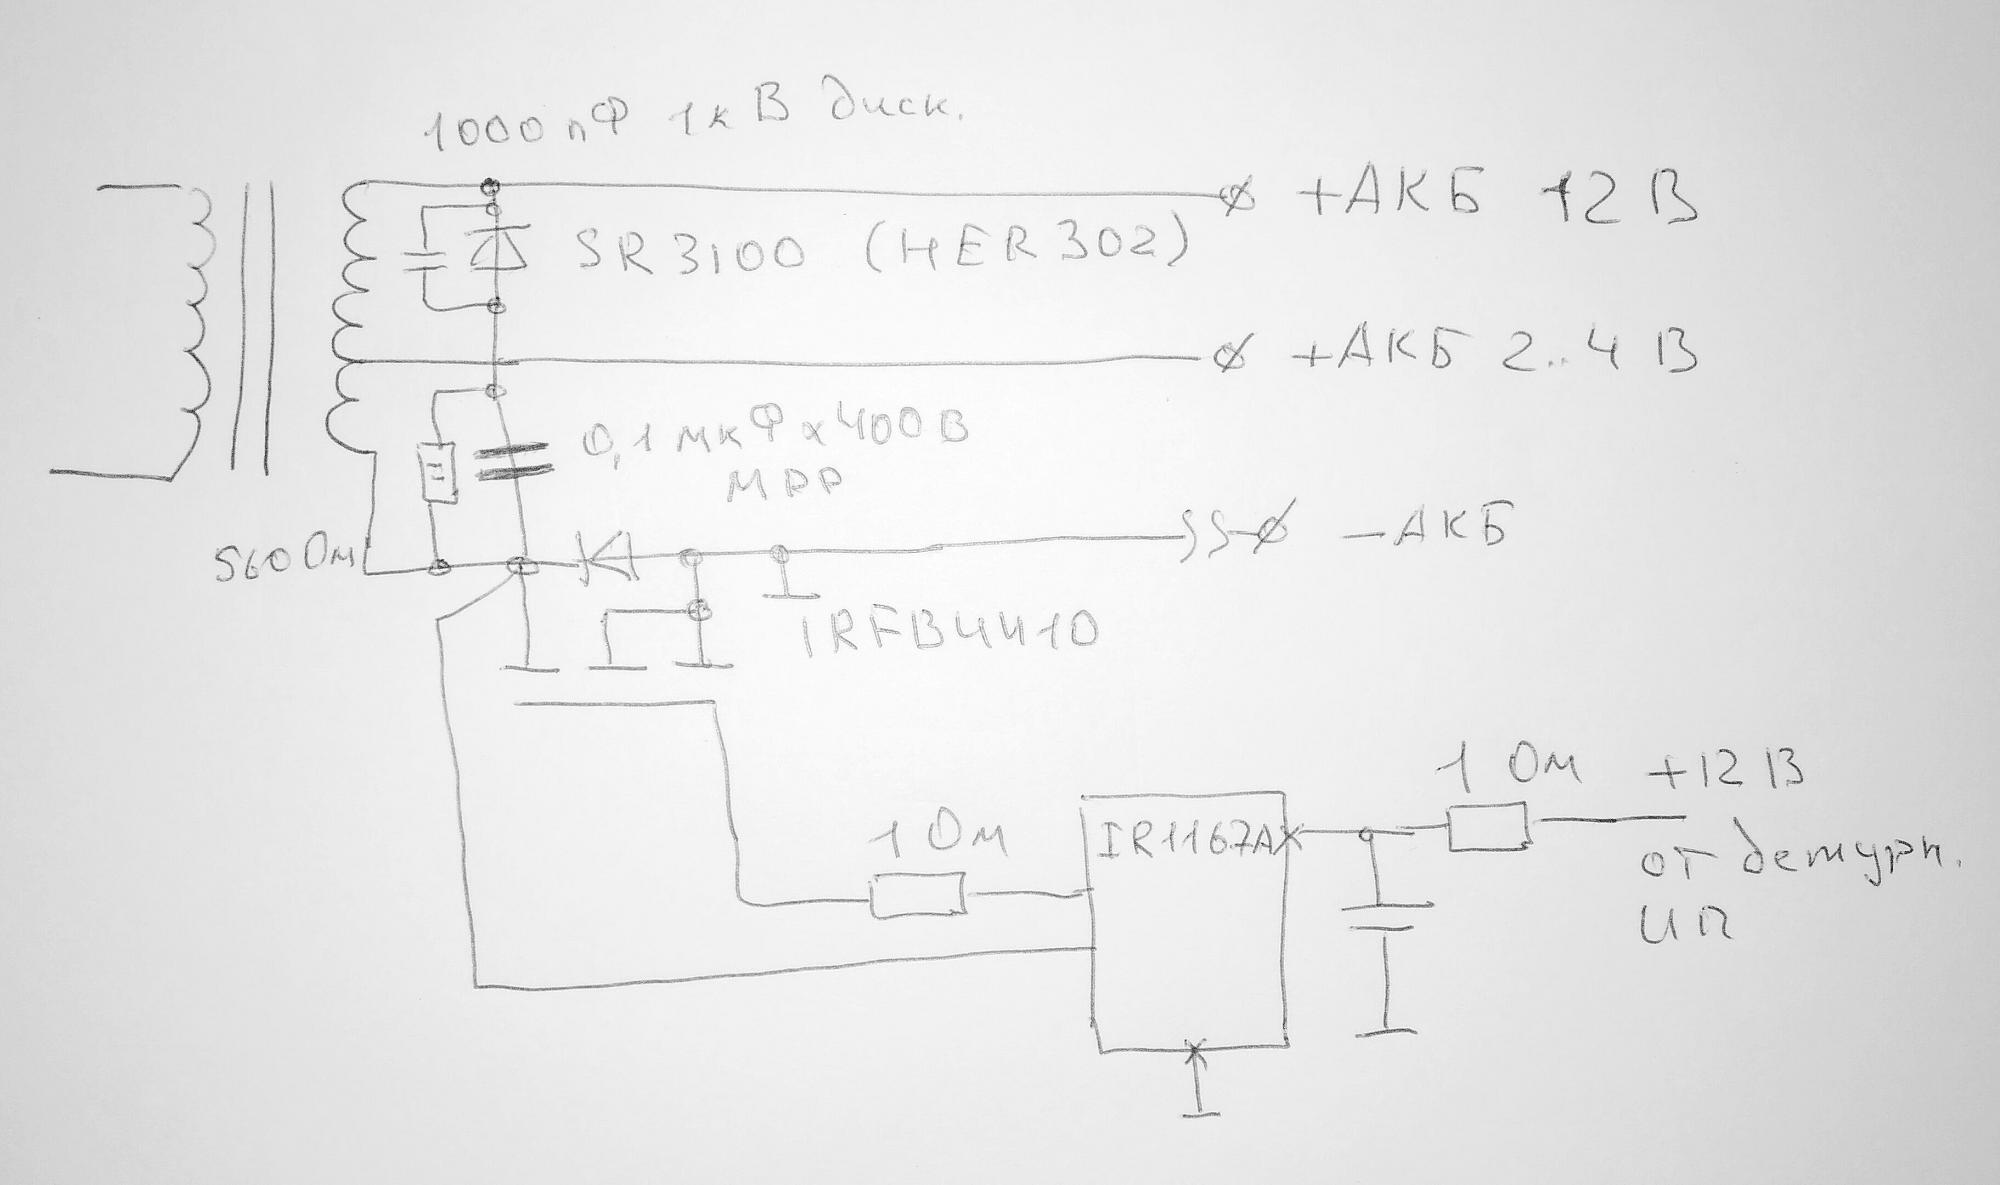 1000 пФ 1кВ диск.
+АКБ 12 В
SR3100 (HER302)
+АКБ 2..4 В
0,1 мкФ х 400В
МРР
560 Ом
-АКБ
IRFB4410
1 Ом
+12 В
1 Ом
IR1167A
от дежурн.
ИП